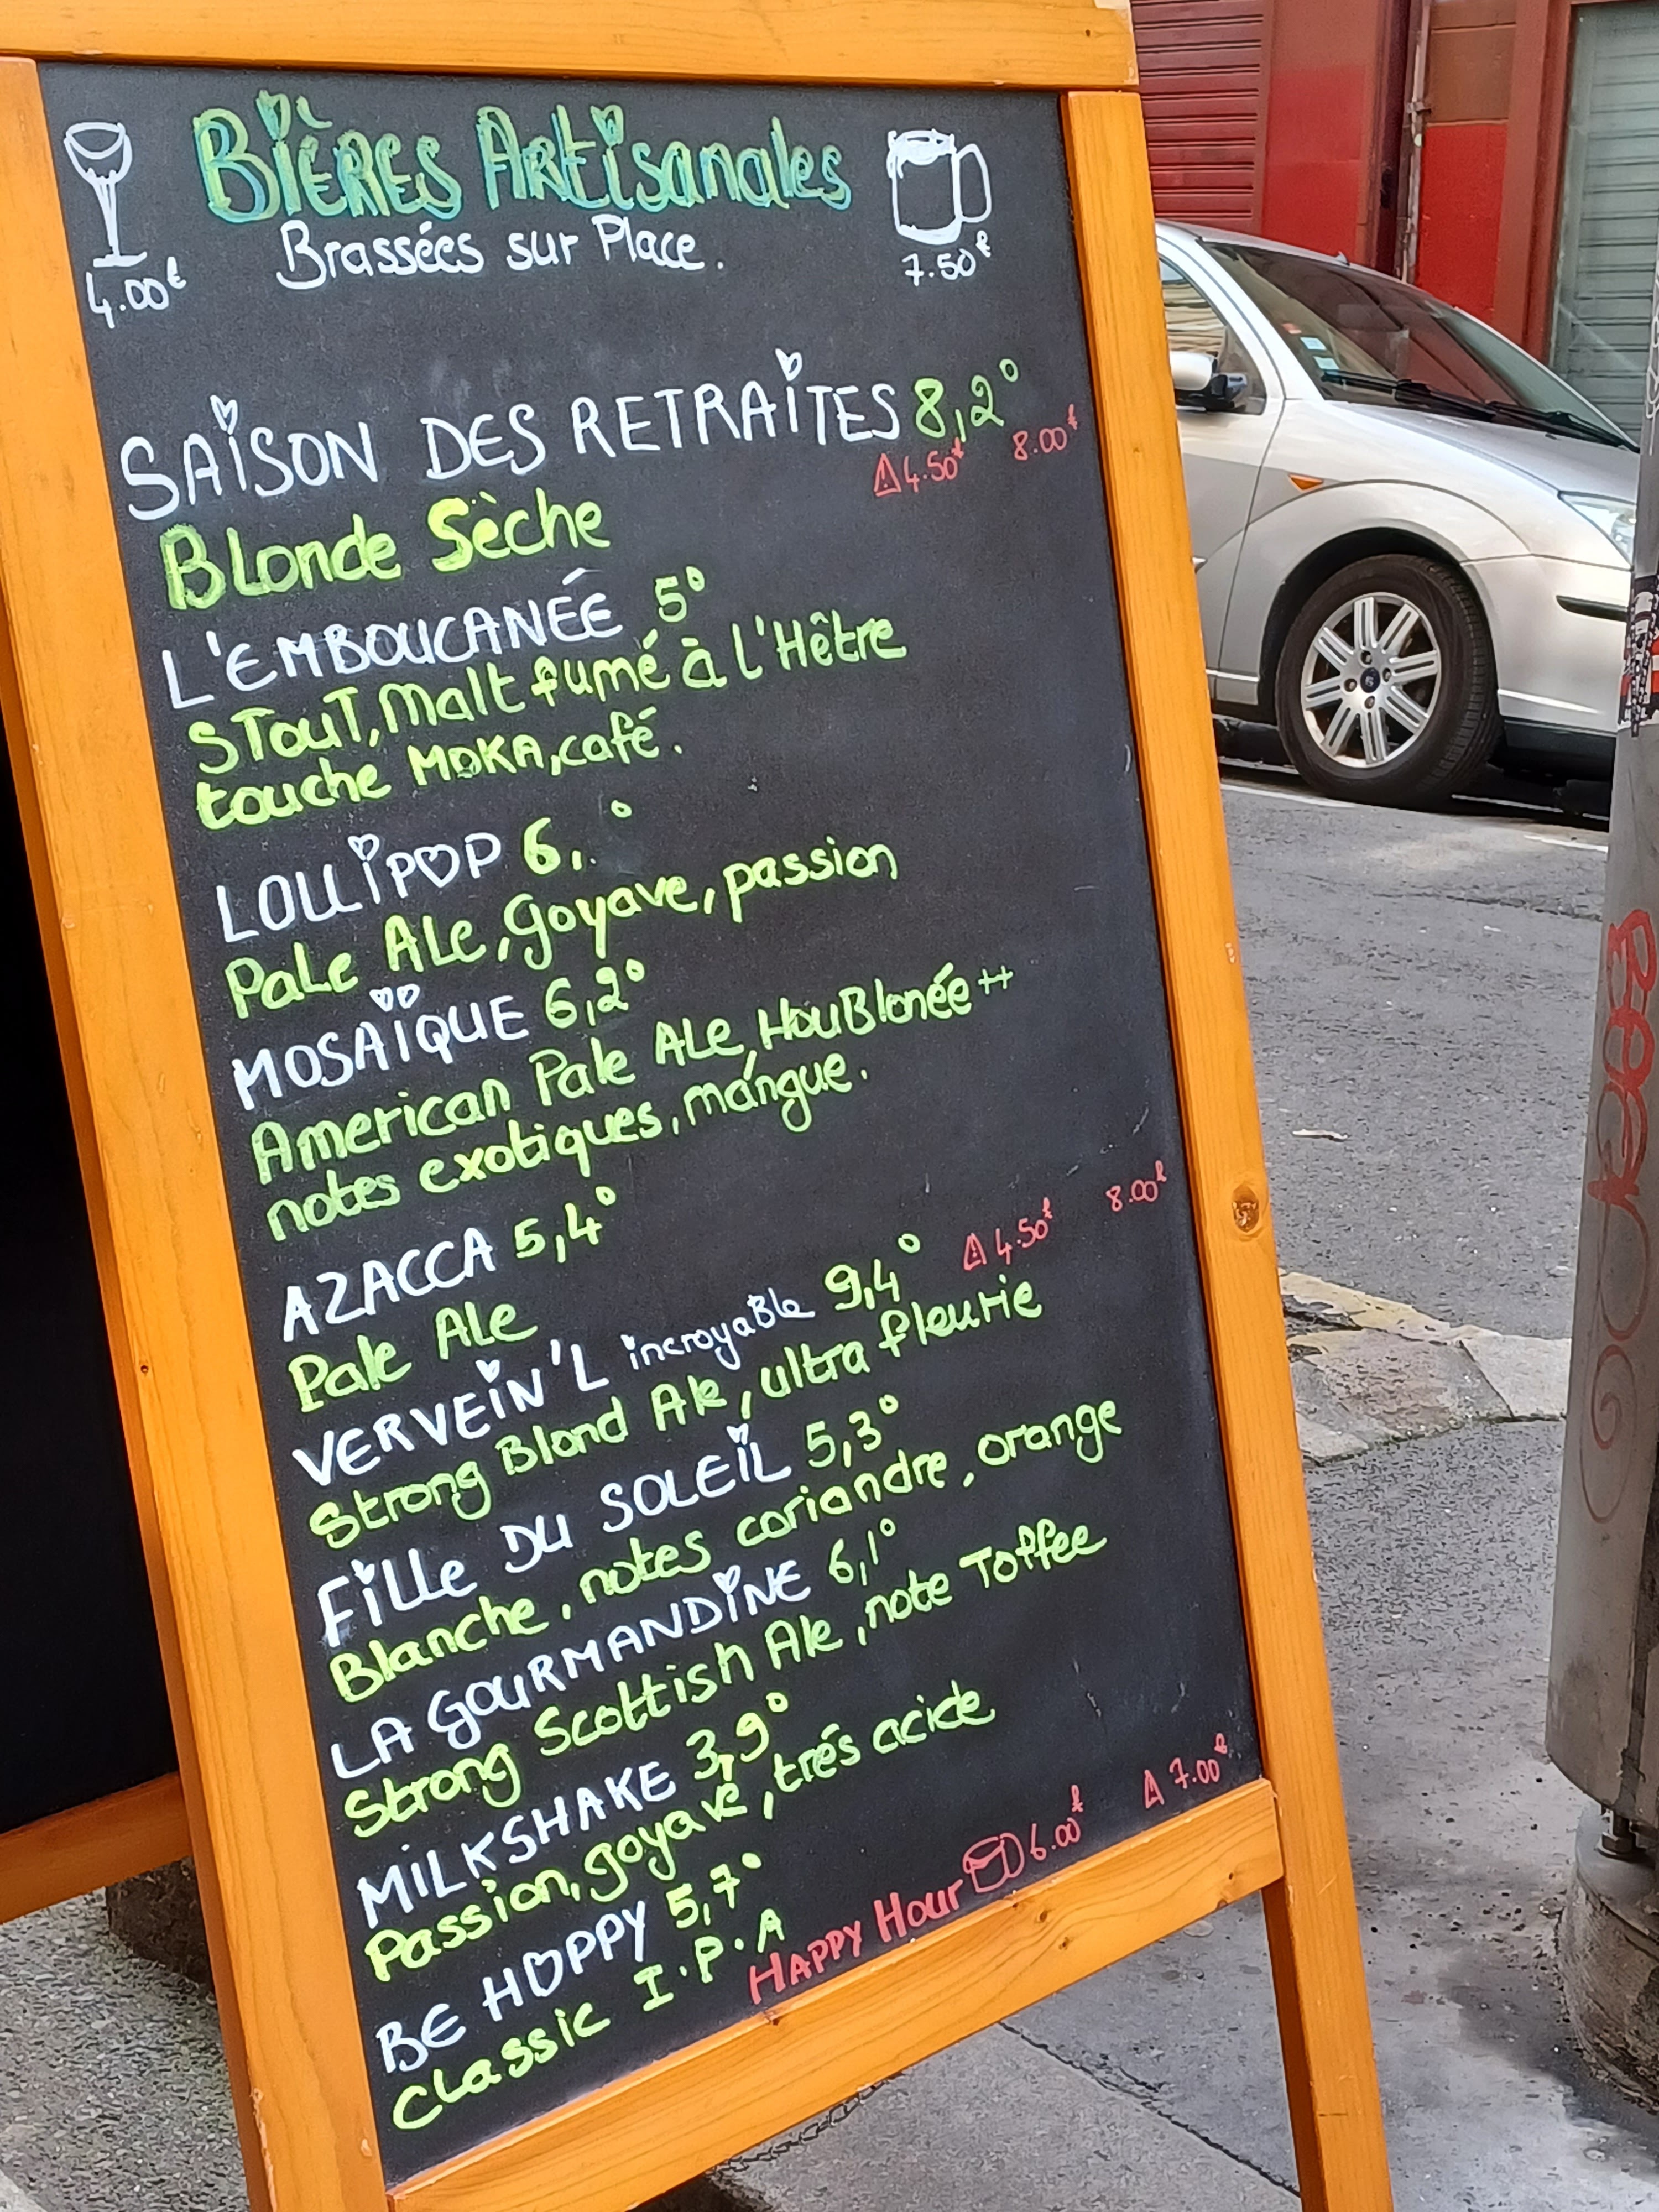 BIÈRES ARtisanales
Brassées sur Place.
4.00€
7.50€
SAISON DES RETRAITES 8,2°
⚠4.50€ 8.00€
BLonde Sèche
L'EMBOUCANÉE 5°
STouT, Malt fumé à l'Hêtre
touche MOKA, café.
LOLLIPOP 6, °
PaLe ALe, goyave, passion
MOSAÏQUE 6,2°
American Pale ALe, HouBlonée ++
notes exotiques, mangue.
AZACCA 5,4°
Pale Ale
VERVEIN'L incroyaBle 9,4° ⚠4.50€ 8.00€
Strong Blond Ale, ultra fleurie
FiLLe DU SOLEIL 5,3°
Blanche, notes coriandre, orange
LA GOURMANDINE 6,1°
Strong Scottish Ale, note Toffee
MILKSHAKE 3,9°
Passion, goyave, trés acide
BE HOPPY 5,7°
CLassic I.P.A
HAPPY Hour 6.00€ ⚠ 7.00€